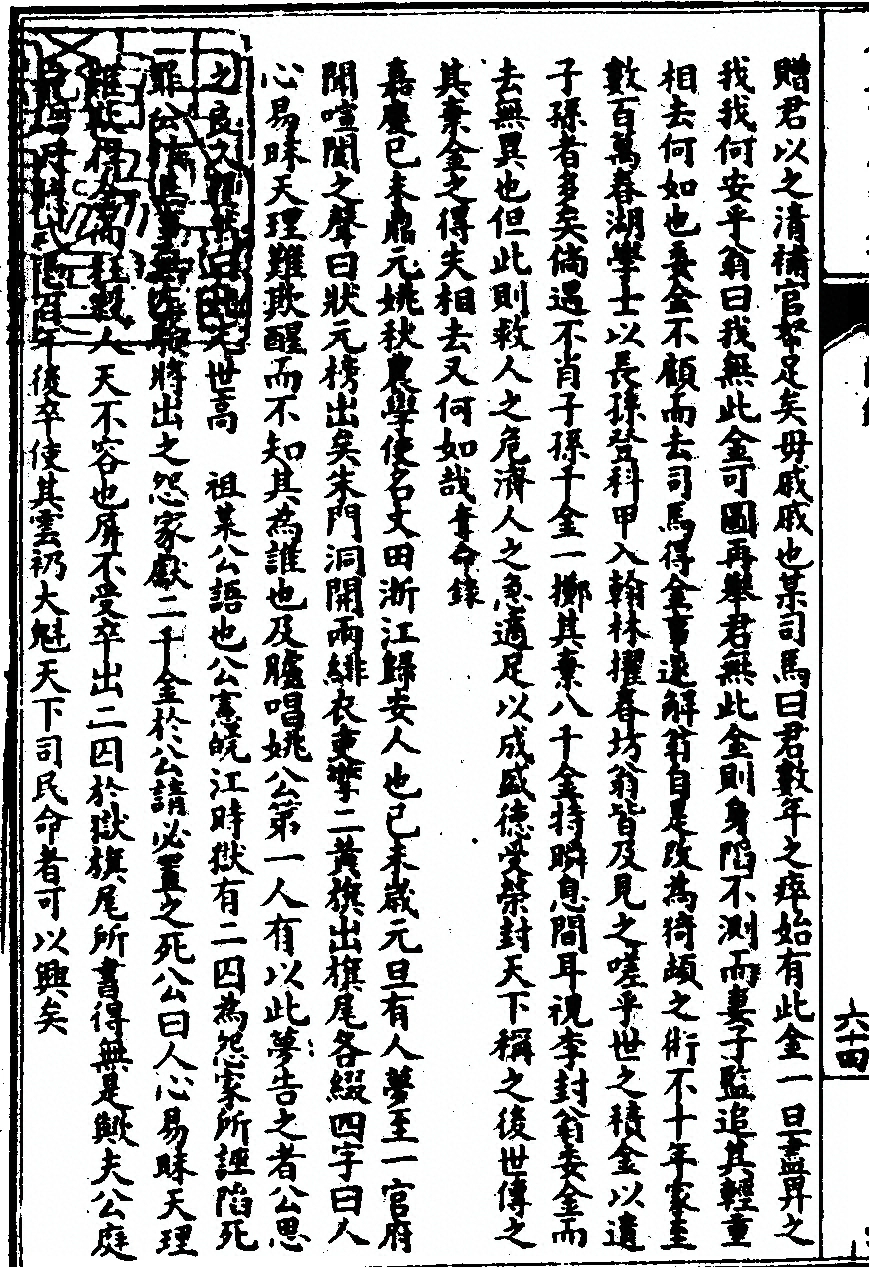 贈君以之清補官帑足矣毋戚戚也某司馬曰君數年之瘁始有此金一旦盡畀之
我我何安乎翁曰我無此金可圖再舉君無此金則身陷不測而妻子監追其輕重
相去何如也委金不顧而去司馬得金事遂解翁自是改為猗頓之術不十年家至
數百萬春湖學士以長孫登科甲入翰林擢春坊翁皆及見之嗟乎世之積金以遺
子孫者多矣倘遇不肖子孫千金一擲其棄八千金特瞬息間耳視李封翁委金而
去無異也但此則救人之危濟人之急適足以成盛德受榮封天下稱之後世傳之
其棄金之得失相去又何如哉 奪命錄
嘉慶己未鼎元姚秋農學使名文田浙江歸安人也己未歲元旦有人夢至一官府
聞喧闐之聲曰狀元榜出矣朱門洞開兩緋衣吏擎二黃旗出旗尾各綴四字曰人
心易昧天理難欺醒而不知其為誰也及臚唱姚公第一人有以此夢告之者公思
之良久 世高 祖某公語也公憲皖江時獄有二囚為怨家所誣陷死
罪公 將出之怨家獻二千金於公請必置之死公曰人心易昧天理
難欺得金而枉殺人天不容也屏不受卒出二囚於獄旗尾所書得無是歟夫公庭
百年後卒使其雲礽大魁天下司民命者可以興矣
六十四